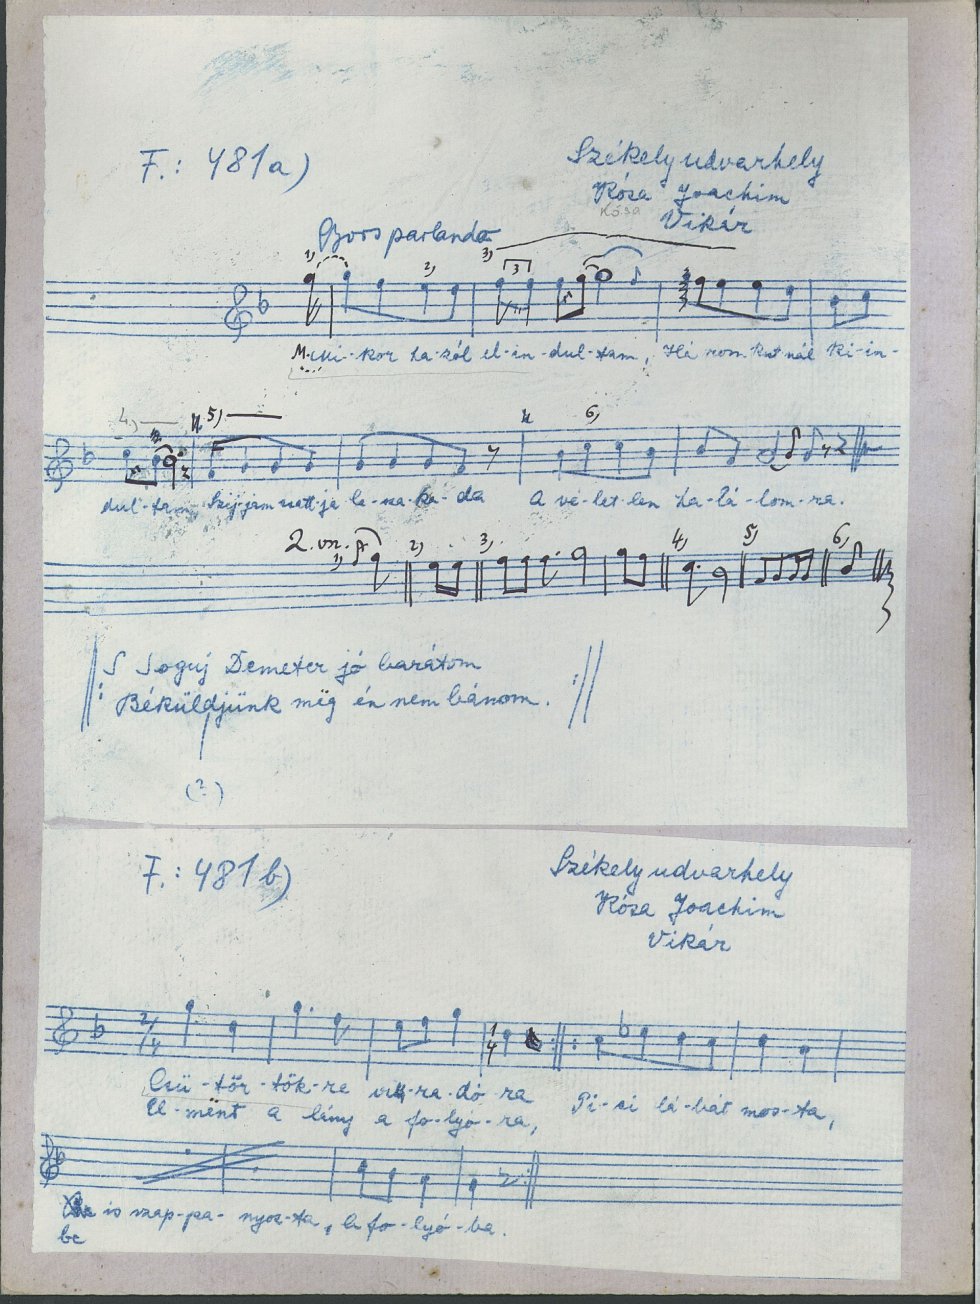 F.: 481a)
Székelyudvarhely
Kósa Joachim
Kósa
Vikár
Gyors parlando
1) 2) 3) 3
Mi-kor ha-zól el-in-dul-tam, Há-rom-kut-nál ki-in-
4) 5) 6)
dul-tam, le-sza-ka-da A vé-let-len ha-lá-lom-ra.
2. vsz.
1) 2) 3) 4) 5) 6)
Soguj Demeter jó barátom
Béküldjünk még én nem bánom.
(?)
F.: 481b)
Székelyudvarhely
Kósa Joachim
Vikár
2/4 1/4
Csü-tör-tök-re vir-ra-dó-ra Pi-ci lá-bát mos-ta,
El-mënt a lány a fo-lyó-ra,
is szap-pa-nyoz-ta, a fo-lyó-ba.
be